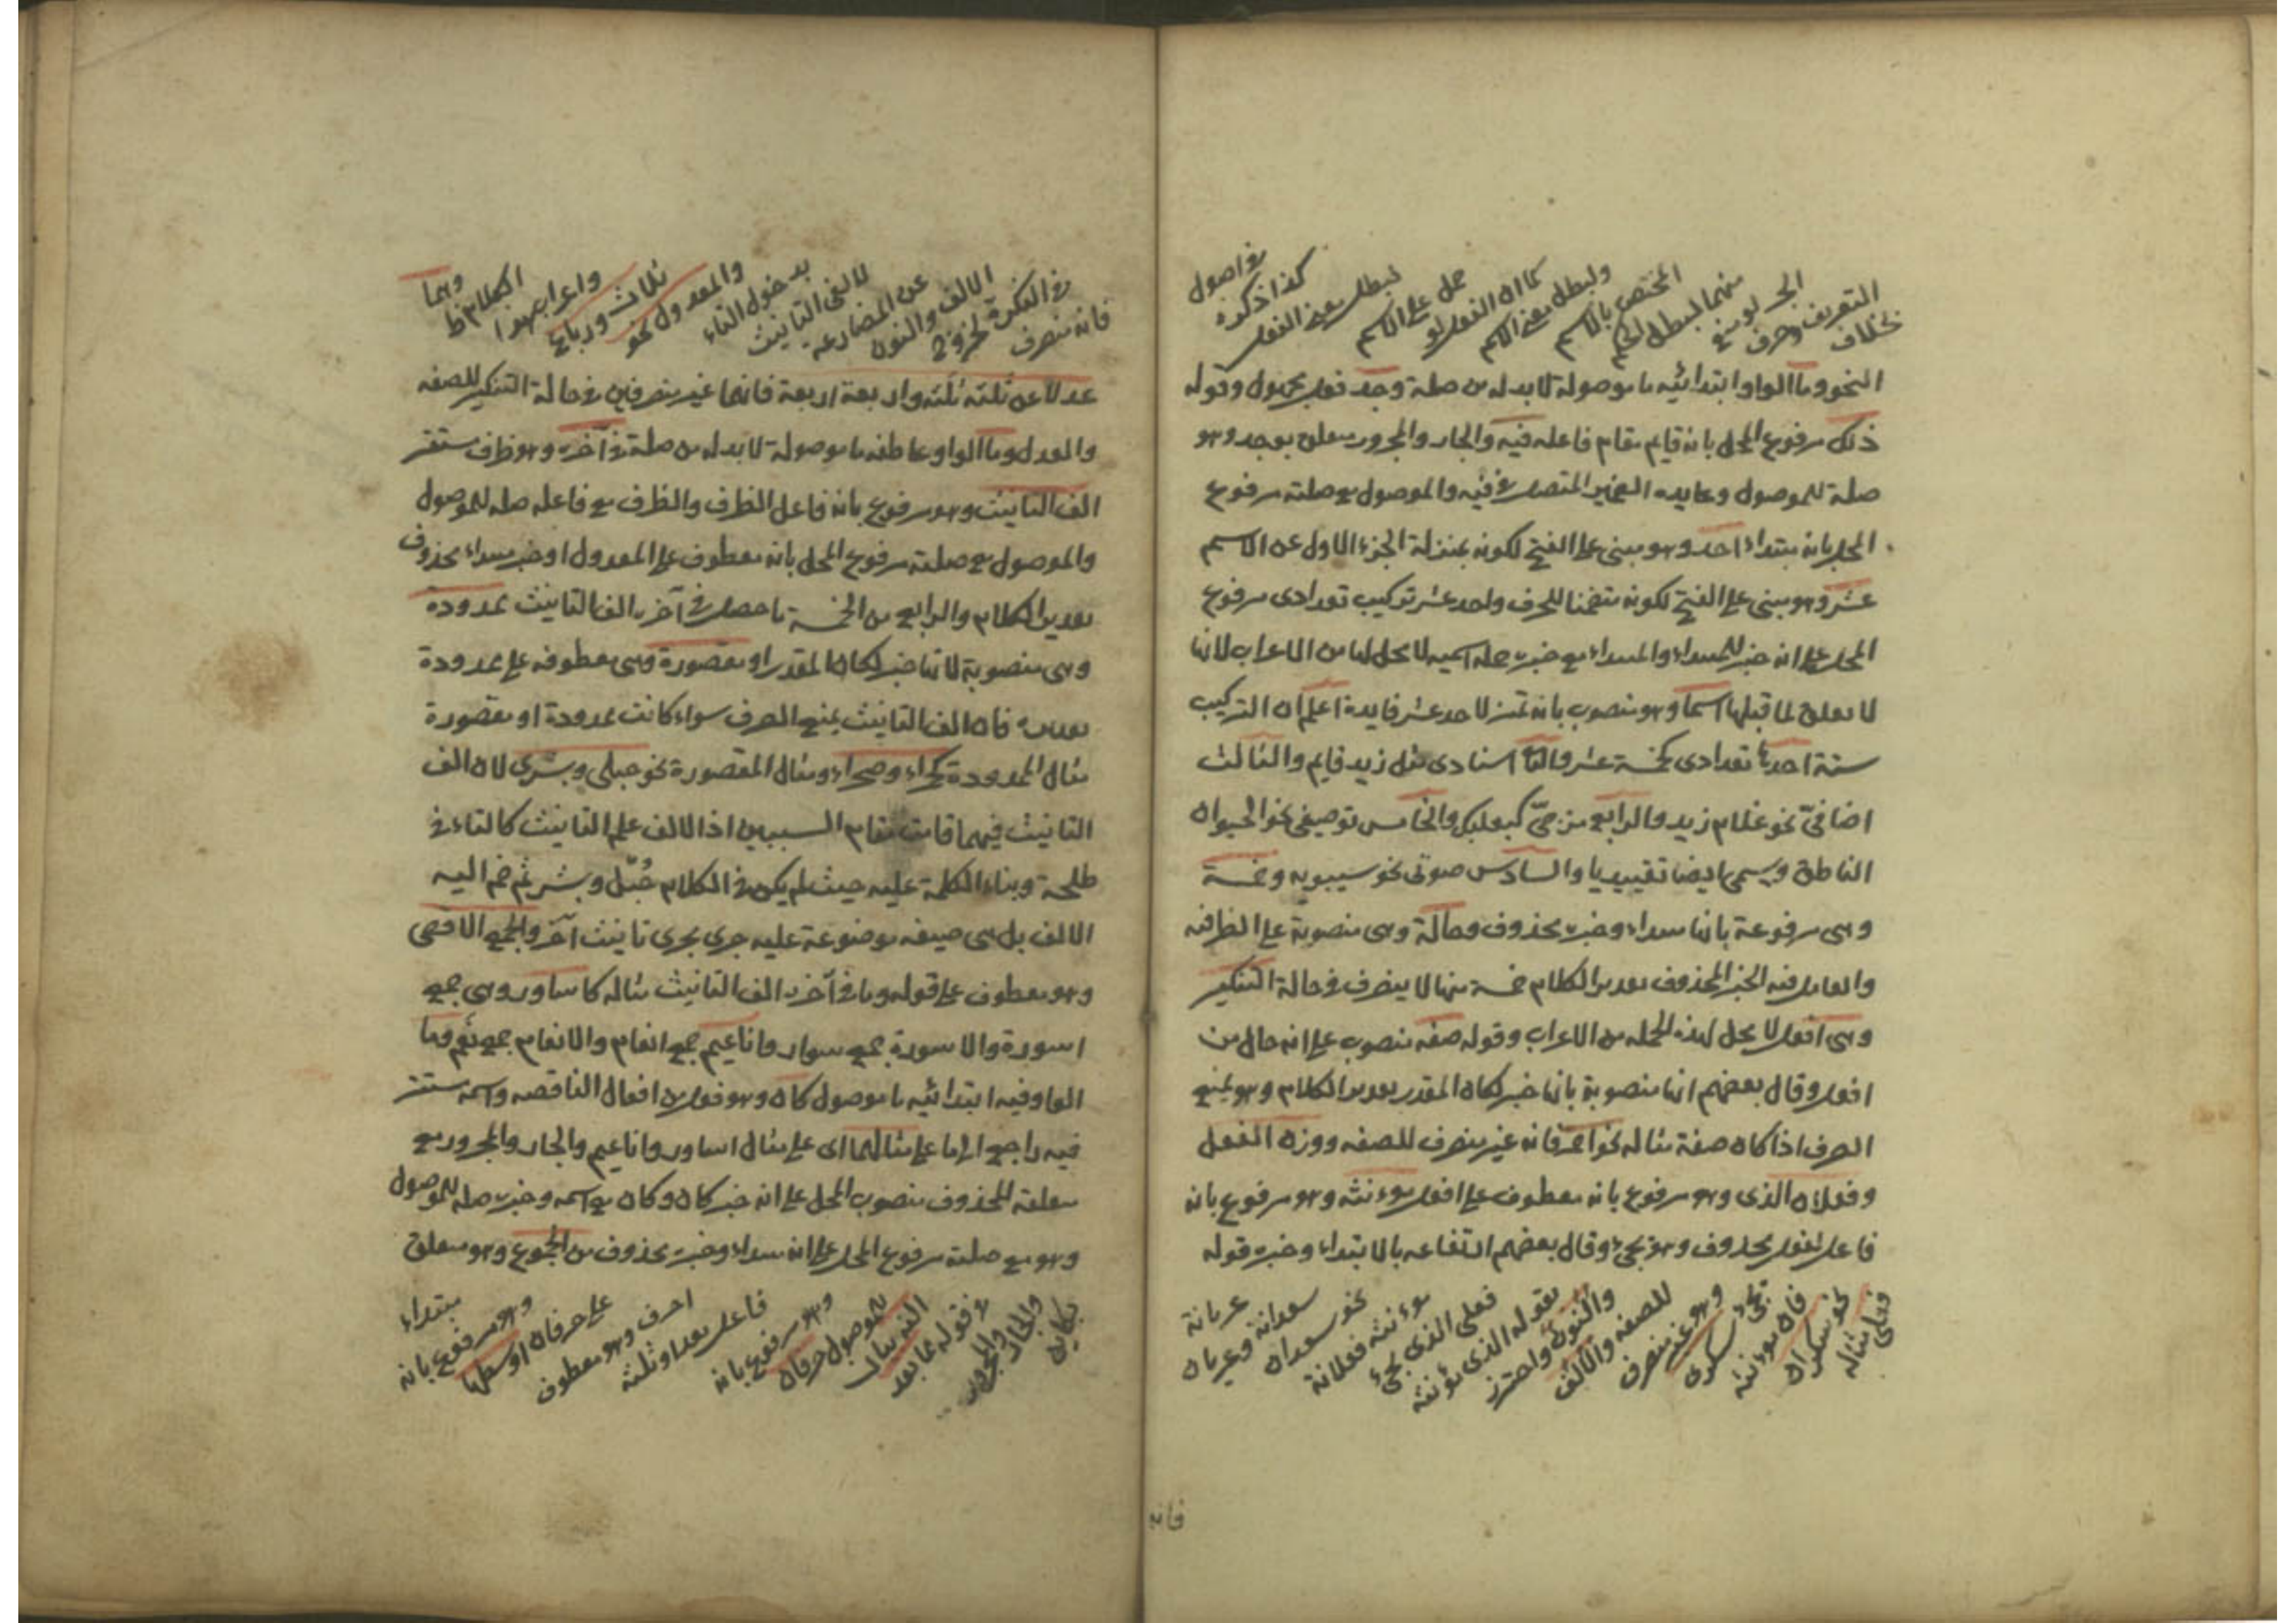 بخلاف
التعريف وحرف
الجر لو منع
منهما لبطل لكم
المختص بالاسم
ولبطل معنى الاسم
كما ان الفعل لو
حمل على الاسم
لبطل معنى الفعل
كذا ذكره
في اصول
النحو وما الواو ابتدائيه ما موصولة لا بد له من صلة وجد فعل مجهول وقوله
ذلك مرفوع المحل بانه قايم مقام فاعله فيه والجار والمجرور متعلق بوجد وهو
صلة للموصول وعايده الضمير المتصل في فيه والموصول مع صلته مرفوع
المحل بانه مبتداء احد وهو مبنى على الفتح لكونه بمنزلة الجزء الاول عن الاسم
عشر وهو مبنى على الفتح لكونه متضمنا للحرف واحد عشر تركيب تعدادى مرفوع
المحل على انه خبر للمبتداء والمبتداء مع خبره جمله اسميه لا محل لها من الاعراب لانها
لا تعلق لما قبلها اسما وهو منصوب بانه تميز لاحد عشر فايدة اعلم ان التركيب
ستة احدها تعدادى كخمسة عشر والثا اسنادى مثل زيد قايم والثالث
اضافىّ نحو غلام زيد والرابع مزجىّ كبعلبك والخامس توصيفى نحو الحيوان
الناطق ويسمى ايضا تقييديا والسادس صوتى نحو سيبويه وخمسة
وهى مرفوعة بانها مبتداء وخبره محذوف وحالة وهى منصوبة على الظرفيه
والعامل فيه الخبر المحذوف تقدير الكلام خمسة منها لا ينصرف في حالة التنكير
وهى افعل لا محل لهذه الجمله من الاعراب وقوله صفه منصوب على انه حال من
افعل وقال بعضهم انها منصوبة بانها خبر لكان المقدر تقدير الكلام وهو يمنع
الصرف اذا كان صفة مثاله نحو احمر فانه غير منصرف للصفه ووزن الفعل
وفعلان الذى وهو مرفوع بانه معطوف على افعل موءنثه وهو مرفوع بانه
فاعل لفعل محذوف وهو يجىء وقال بعضهم ارتفاعه بالابتداء وخبره قوله
فعلى مثاله
نحو سكران
فان موءنثه
يجىء سكرى
وهو غير منصرف
للصفه والالف
والنون واحترز
بقوله الذى مؤنثه
فعلى الذى يجىء
موءنثه فعلانة
نحو سعدان
سعدانة وعريان
عريانة
فانه
فانه منصرف
في النكرة لخروج
الالف والنون
عن المضارعه
لالفى التانيث
بدخول التاء
والمعدول نحو
ثلاث ورباع
واعراب هذا
الكلام ظ
وهما
عدلا عن ثلثة ثلثه واربعة اربعة فانهما غير منصرفين في حالة التنكير للصفه
والعدل وما الواو عاطفه ما موصولة لا بد له من صلة في آخره وهو ظرف مستقر
الف التانيث وهو مرفوع بانه فاعل الظرف والظرف مع فاعله صله للموصول
والموصول مع صلته مرفوع المحل بانه معطوف على المعدول او خبر مبتداء محذوف
تقدير الكلام والرابع من الخمسة ما حصل في آخره الف التانيث ممدودة
وهى منصوبة لانها خبر لكان المقدر او مقصورة وهى معطوفه على ممدودة
تقديره فان الف التانيث يمنع الصرف سواء كانت ممدودة او مقصورة
مثال الممدودة كحمراء وصحراء ومثال المقصورة نحو حبلى وبشرى لان الف
التانيث فيهما قامت مقام السببين اذ الالف علم التانيث كالتاء في
طلحة وبناء الكلمة عليه حيث لم يكن في الكلام حُبّل وبشر ثم ضم اليه
الالف بل هى صيغه موضوعة عليه جرى مجرى تانيث آخر والجمع الاقصى
وهو معطوف على قوله وما في آخره الف التانيث مثاله كاساور وهى جمع
اسورة والاسورة جمع سوار واناعيم جمع انعام والانعام جمع نَعَم وما
الواو فيه ابتدائيه ما موصول كان وهو فعل من افعال الناقصه واسمه مستتر
فيه راجع الى ما على مثالهما اى على مثال اساور واناعيم والجار والمجرور مع
متعلقه المحذوف منصوب المحل على انه خبر كان وكان مع اسمه وخبره صله للموصول
وهو مع صلته مرفوع المحل على انه مبتداء وخبره محذوف من الجموع وهو متعلق
بكاين
والجار والمجرور
في قوله مما بعد
الفه بيان
للموصول حرفان
وهو مرفوع بانه
فاعل بعد او ثلثه
احرف وهو معطوف
على حرفان اوسطها
وهو مرفوع بانه
مبتداء